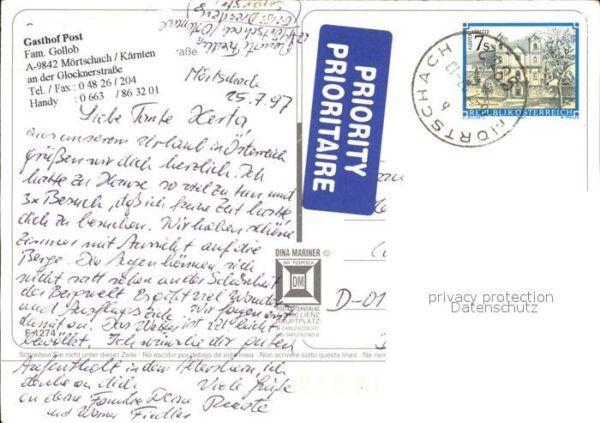 Gasthof Post
Fam. Gollob
A-9842 Mörtschach / Kärnten
an der Glocknerstraße
Tel. / Fax : 0 48 26 / 204
Handy : 0 663 / 86 32 01
Mörtschach
25.7.97
Liebe Tante Herta
aus unserem Urlaub in Österreich
grüßen wir dich herzlich. Ich
hatte zu Hause so viel zu tun und
3x Besuch, daß ich keine Zeit hatte
dich zu besuchen. Wir haben schöne
Zimmer mit Aussicht auf die
Berge. Die Augen können sich
nicht satt sehen an der Schönheit
der Bergwelt. Es gibt viel Wander
und Ausflugsziele. Wir fangen erst
damit an. Das Wetter ist leicht
bewölkt. Ich wünsche dir guten
E-1274
Schreiben Sie nicht unter dieser Zeile - No escribir por debajo de esta linea - Non scrivere sotto questa linea - Ne rien
Aufenthalt in dem Altersheim, ich
denke an dich Viele Grüße
an deine Familie Deine Renate
und Werner Fiedler
PRIORITY
PRIORITAIRE
7 S
REPUBLIK ÖSTERREICH
MÖRTSCHACH
DINA MARINER ©
DM
LIENZ
HAUPTPLATZ
D-01
privacy protection
Datenschutz